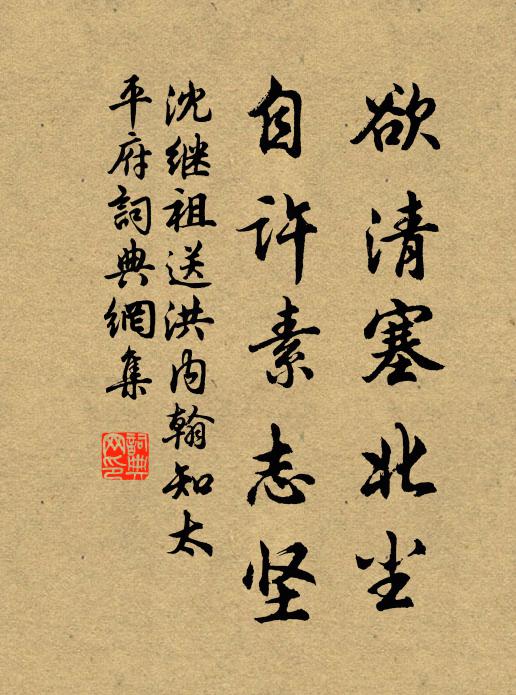 欲清塞北尘
自许素志坚
沈继祖送洪内翰知太
平府詞典網集
詞典网印